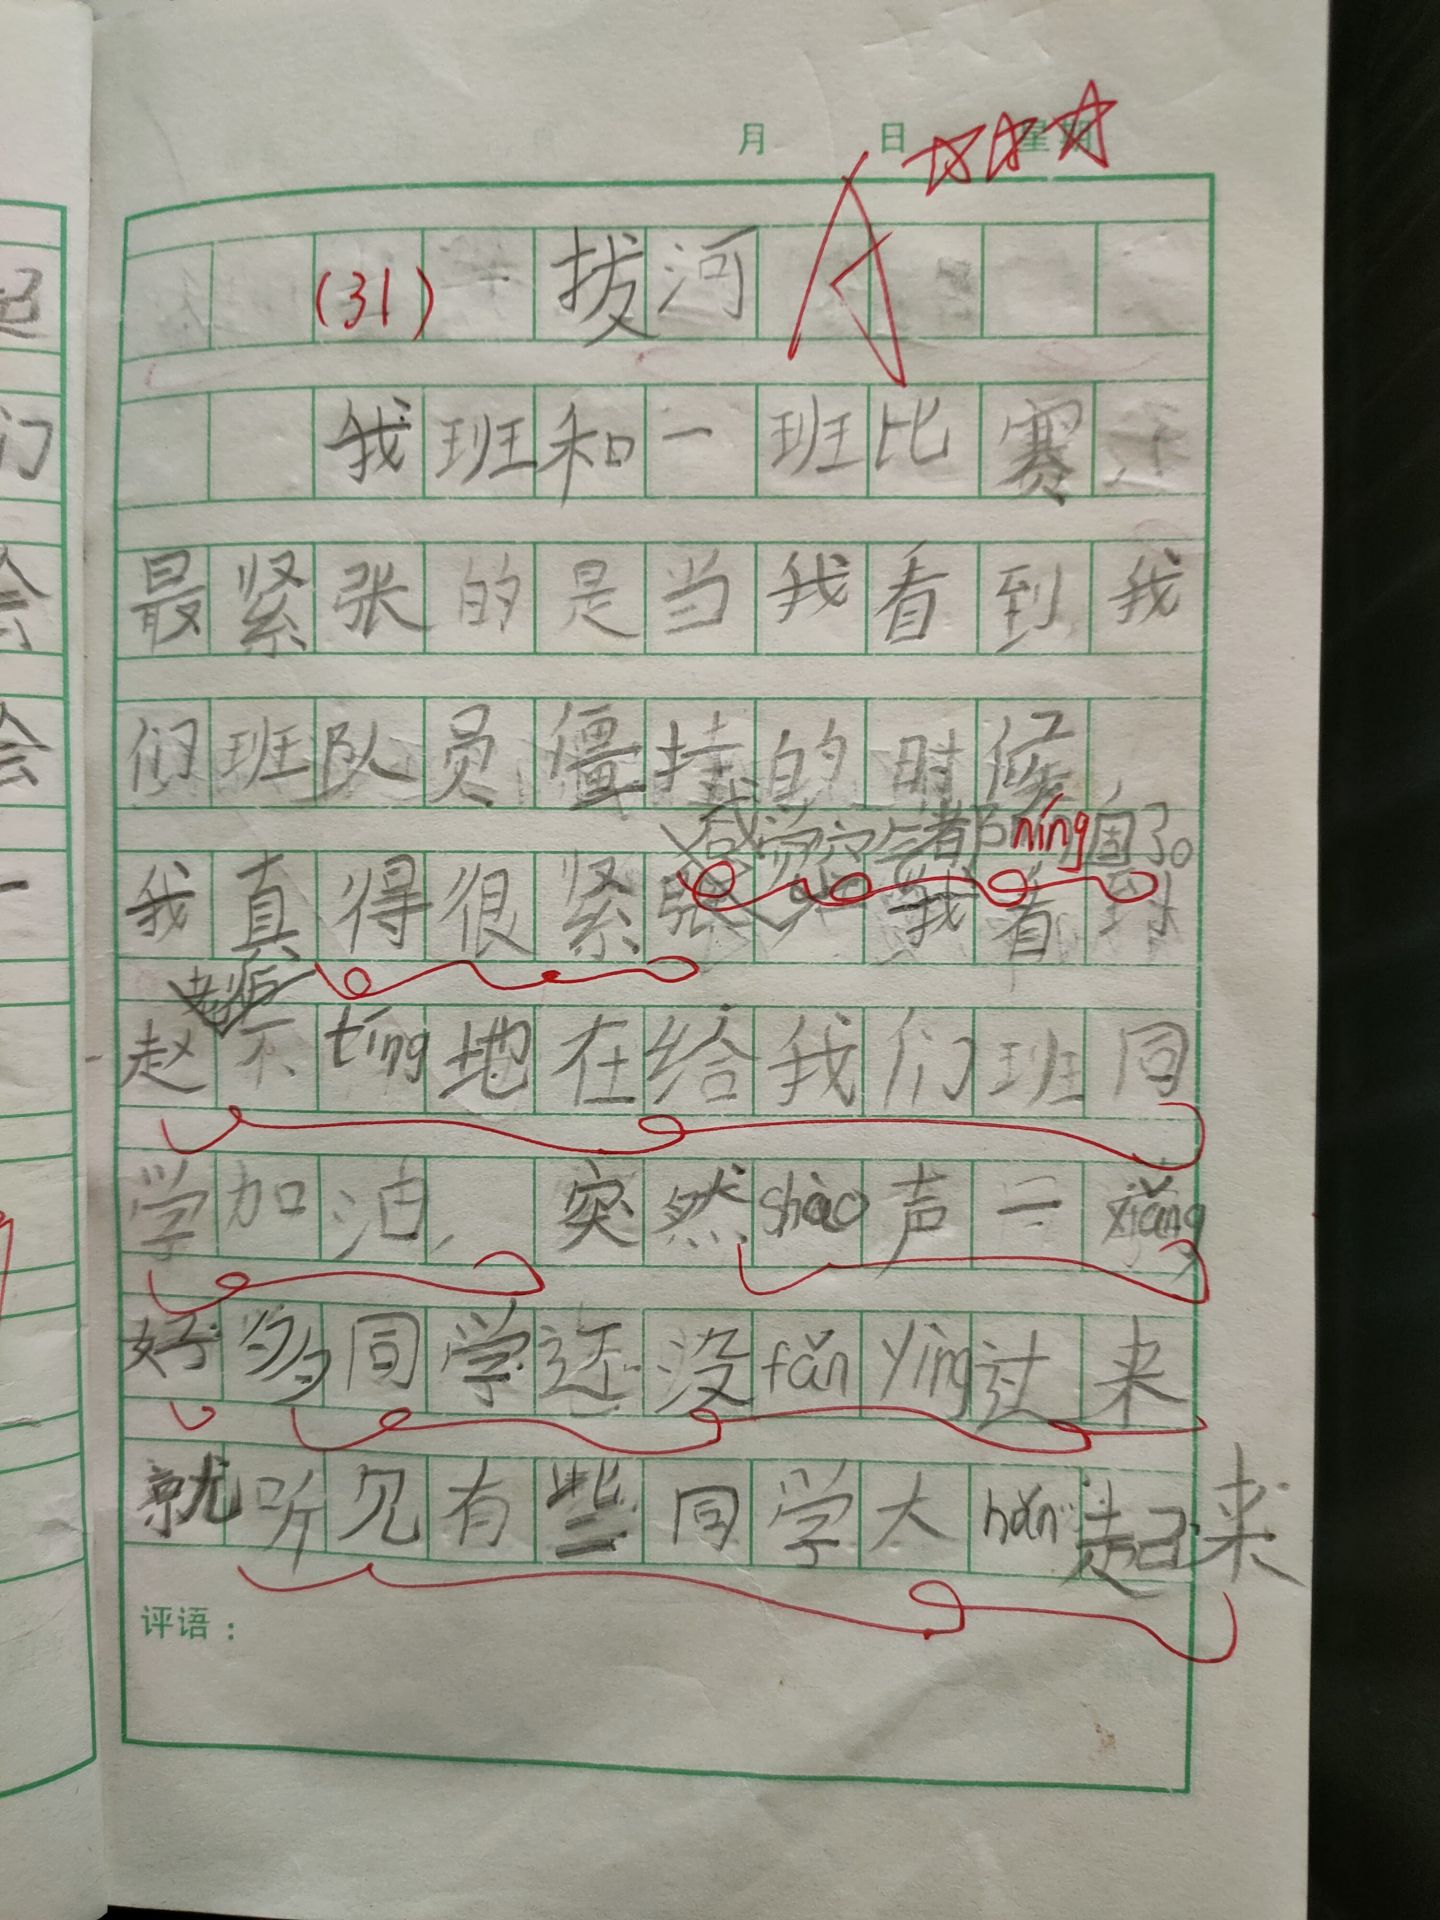 月 日 星期
(31) 拔河 A
我班和一班比赛
最紧张的是当我看到我
们班队员僵持的时候
感觉空气都níng固了。
我真得很紧张 我看到
老师
赵不tíng地在给我们班同
学加油, 突然shào声一xiǎng
好多同学还没fǎn yìng过来
就听见有些同学大hǎn起来
评语：
起
们
会
会
一